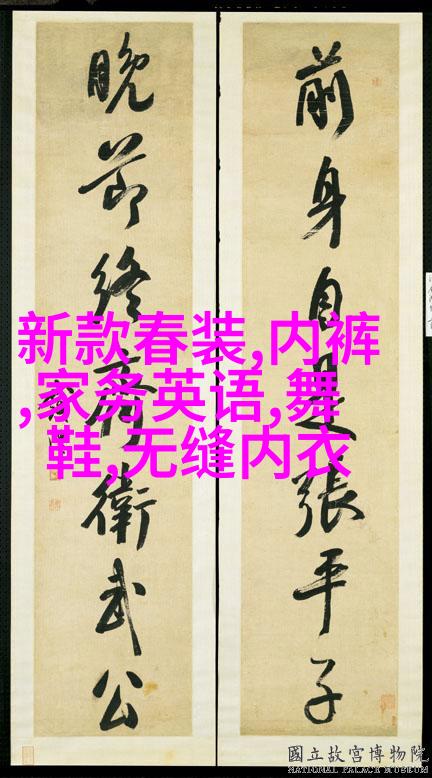 前身自是張平子
晚節終衛武公
新款春装,内裤
,家务英语,舞
鞋,无缝内衣
國立故宮博物院
NATIONAL PALACE MUSEUM